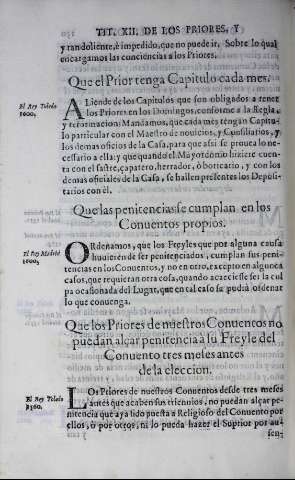 TIT. XII. DE LOS PRIORES, Y
y tan doliente, è impedido, que no puede ir. Sobre lo qual
encargamos las conciencias à los Priores.
Que el Prior tenga Capitulo cada mes.
El Rey Toledo
1600.
ALiende de los Capitulos que son obligados a tener
los Priores en los Domingos, conforme a la Regla,
y reformacion: Mandamos, que cada mes tengan Capitu-
lo particular con el Maestro de novicios, y Consiliarios, y
los demas oficios de la Casa, para que alsi se provea lo ne-
cessario a ella: y que quando el Mayordomo hiziere cuen-
ta con el sastre, çapatero, herrador, ò boticario, y con los
demas oficiales de la Casa, se hallen presentes los Deposi-
tarios con èl.
Que las penitencias se cumplan en los
Conuentos propios.
El Rey Madrid
1600.
ORdenamos, que los Freyles que por alguna causa
huuieren de ser penitenciados, cumplan sus peni-
tencias en los Conuentos, y no en otro, excepto en algunos
casos, que requieran otra cosa, quando acaeciesse ser la cul
pa ocasionada del Lugar, que en tal caso se podrà ordenar
lo que convenga.
Que los Priores de nuestros Conuentos no
puedan alçar penitencia à su Freyle del
Conuento tres meses antes
de la eleccion.
El Rey Toledo
1560.
LOs Priores de nuestros Conventos desde tres meses
antes que acaben sus triennios, no puedan alçar pe-
nitencia que aya sido puesta a Religioso del Convento por
ellos, ò por otros, ni lo pueda hazer el Suprior por au
sen-